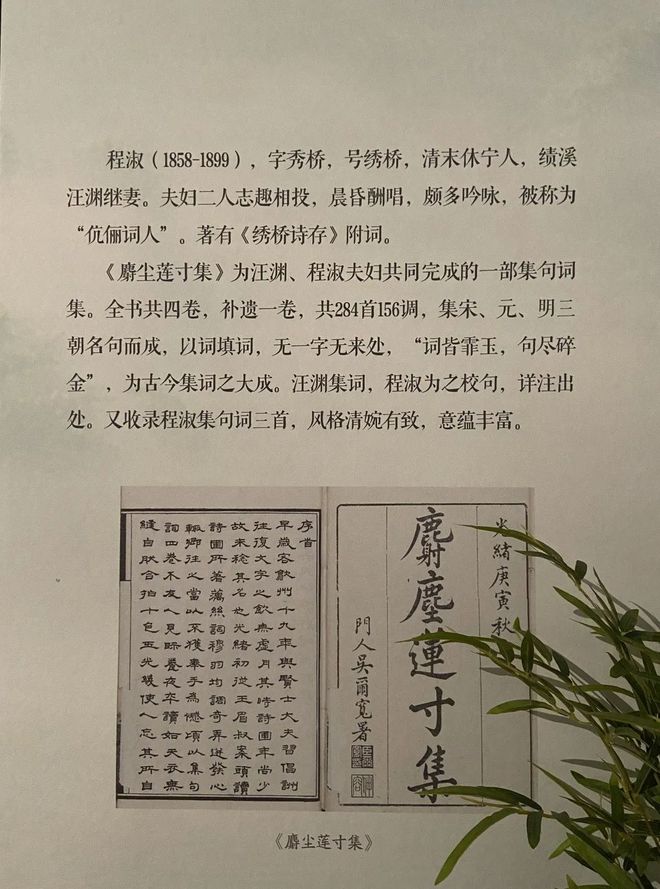 程淑（1858-1899），字秀桥，号绣桥，清末休宁人，绩溪
汪渊继妻。夫妇二人志趣相投，晨昏酬唱，颇多吟咏，被称为
“伉俪词人”。著有《绣桥诗存》附词。
《麝尘莲寸集》为汪渊、程淑夫妇共同完成的一部集句词
集。全书共四卷，补遗一卷，共284首156调，集宋、元、明三
朝名句而成，以词填词，无一字无来处，“词皆霏玉，句尽碎
金”，为古今集词之大成。汪渊集词，程淑为之校句，详注出
处。又收录程淑集句词三首，风格清婉有致，意蕴丰富。
光緒庚寅秋
麝塵蓮寸集
門人吳爾寬署
序首
早歲客歙州十九年與賢士大夫習倡詶
往復文字之飲無虛月其時詩圃年尚少
故未稔其名也光緒初從王眉叔案頭讀
詩圃所著藕絲詞穆羽均調奇弄迸發心
輒鄉往之當以不獲奉手為憾頃以集句
詞四卷介友人見眎晝夜卒讀如天衣無
縫自然合拍十色五光幾使人忘其所自
《麝尘莲寸集》